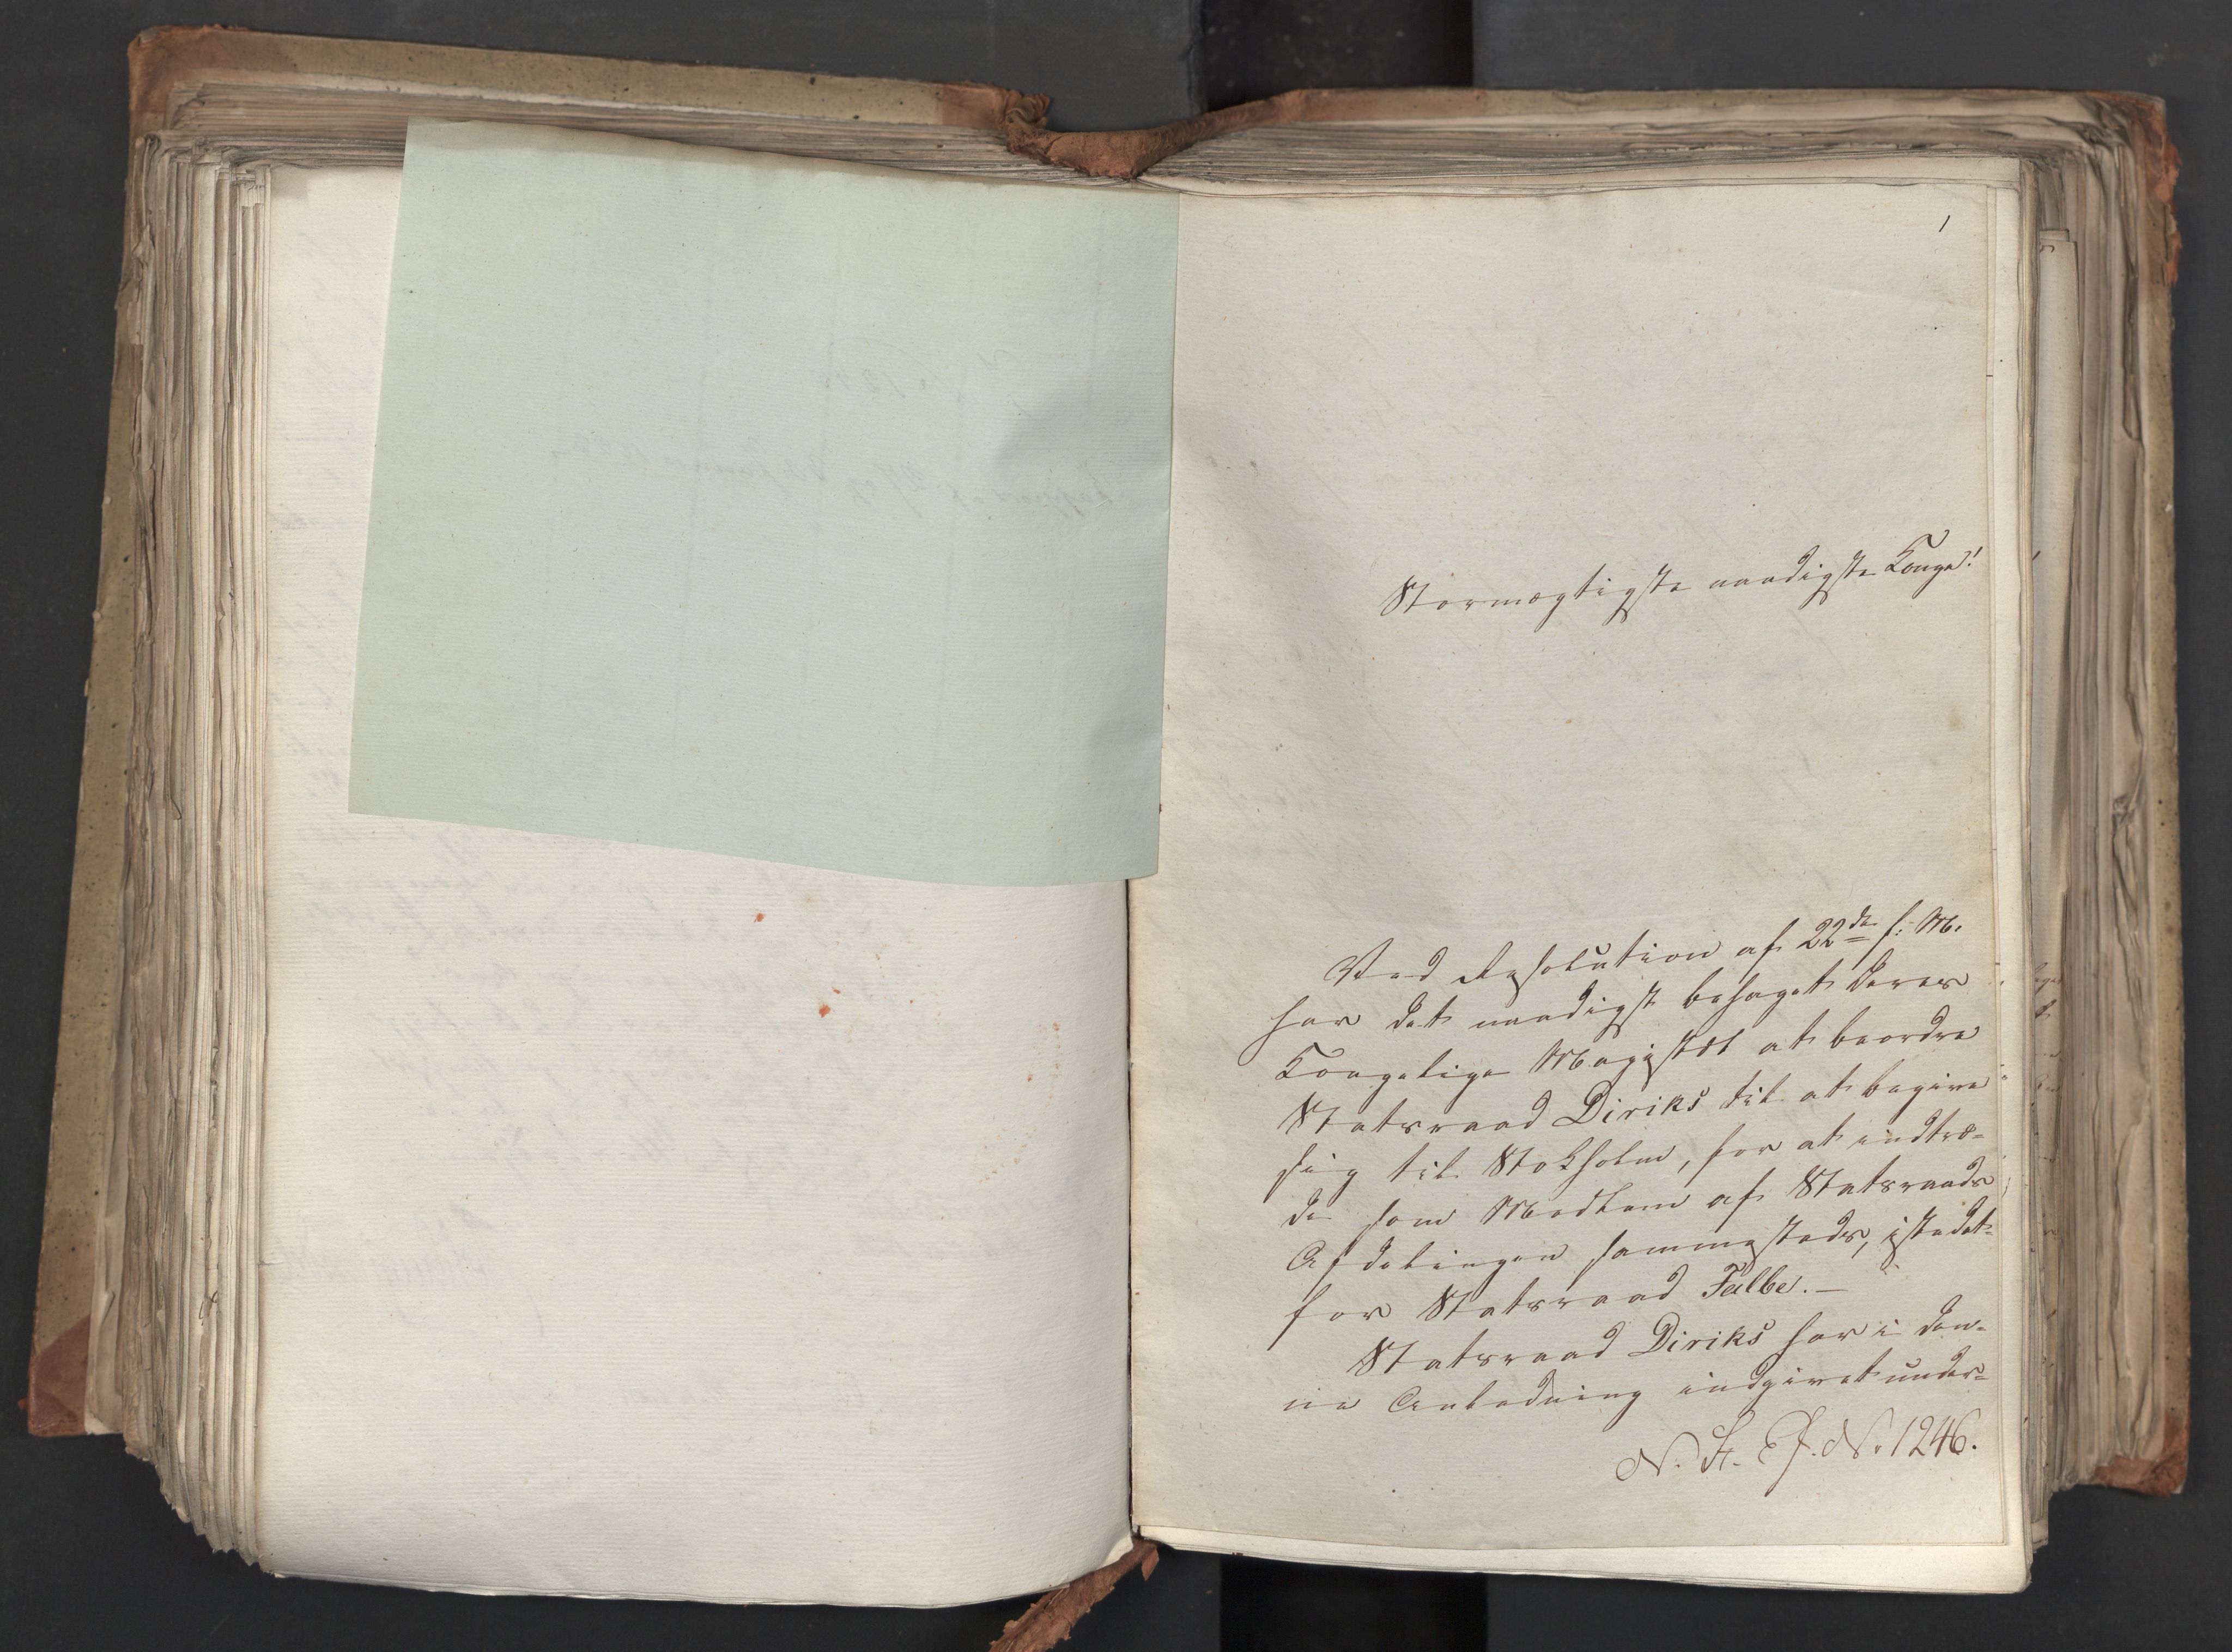 1
Stormægtigste naadigste Konge!
Ved Resolution af 22de f: M.
har det naadigst behaget Deres
Kongelige Majestæt at beordre
Statsraad Diriks til at begive
sig til Stokholm, for at indtræ-
de som Medlem af Statsraads
Afdelingen sammesteds, istedet-
for Statsraad Falbe.—
Statsraad Diriks har i den-
ne Anledning indgivet under-
N. St. Ex. J. N. 1246.